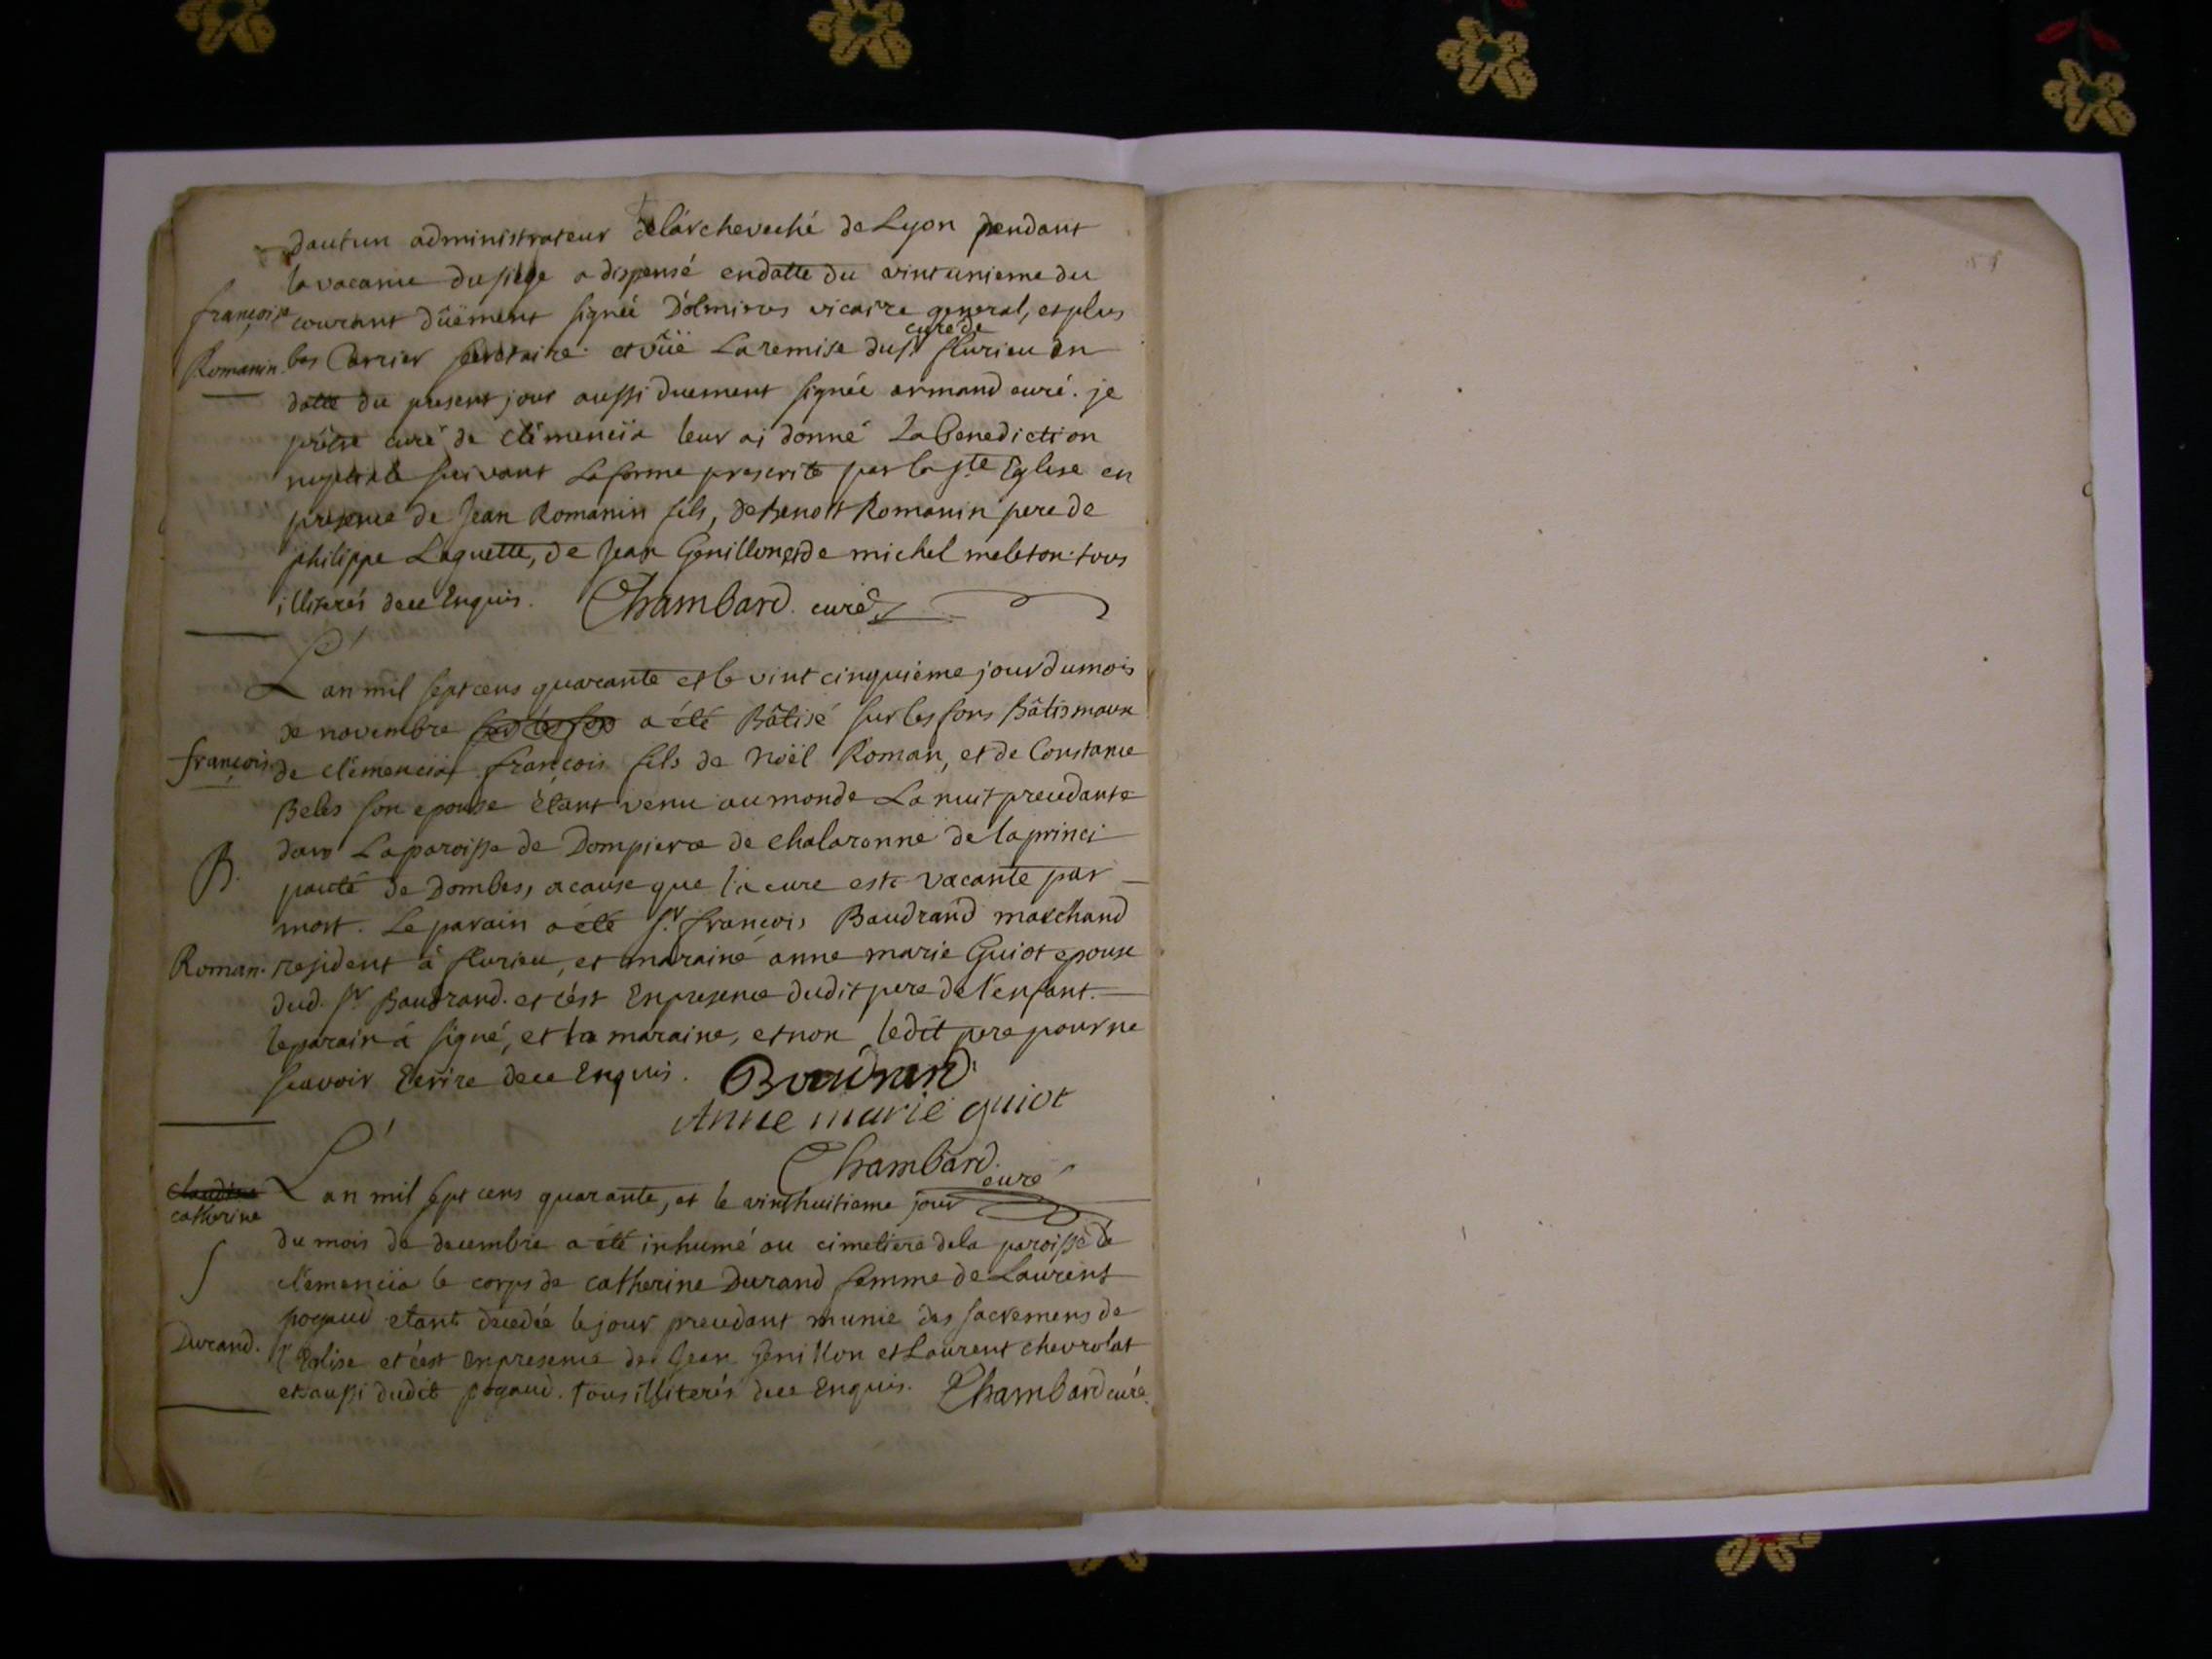 dautun administrateur delárcheveché de Lyon pendant
la vacance du siege a dispensé endatte du vint unieme du
françoise courant dûëment signée Dólmieres vicaire general, et plus
curé de
Romanin. bas Carrier secretaire. et vûë La remise du sr. flurieu en
datte du present jour aussi duement signée armand curé. je
prêtre curé de clémenciä leur ai donné La Benediction
nuptiale suivant la forme prescrite par la ste Eglise en
presence de Jean Romanin fils, de Benoit Romanin pere de
philippe Laguette, de Jean Genillon et de michel meleton. tous
illiterés de ce Enquis. Chambard. curé
L'an mil sept cens quarante et le vint cinquième jour du mois
de novembre a été Bâtisé sur les fons Bâtismaux
françois. de clémencia françois fils de Nöël Roman, et de Constance
Beles son epouse Étant venu au monde La nuit precedante
dans La paroisse de Dompierre de chalaronne de la princi
B.
pauté de Dombes, a cause que la cure este vacante par
mort. Le parain a été sr. françois Baudrand marchand
Roman. resident à flurieu, et maraine anne marie Guiot epouse
dud. sr Baudrand. et cést En presence dudit pere de l'enfant.
le parain á signé, et la maraine, et non ledit pere pour ne
scavoir Ecrire de ce Enquis. Baudrand
Anne marie guiot
Chambard.
curé
Claudine L'an mil sept cens quarante, et le vint huitieme jour
catherine
du mois de decembre a été inhumé au cimetiere de la paroisse de
S clémenciä le corps de catherine Durand femme de Laurent
pogaud etant decedée le jour precedant munie des sacremens de
Durand. l'Eglise et cést En presence de Jean Genillon et Laurent chevrolat
et aussi dudit pogaud. tous illiterés de ce Enquis. Chambard curé.